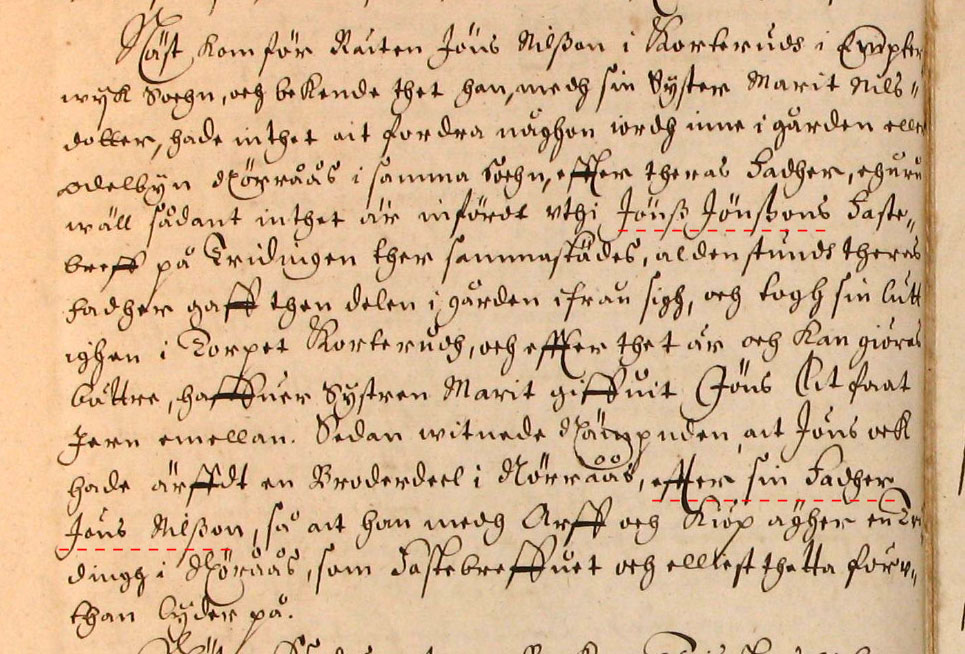 Näst kom för Rätten Jöns Nilßon i Korterudh i Empter
wijk Sochn, och bekende thet han, medh sin Syster Marit Nils„
dotter, hade inthet att fordra någhon iordh inne i gården eller
odelbyn Nörråås i samma Sochn, effter theras Fadher, ehuru
wäll sådant inthet är infördt vthi Jönß Jönßons Faste„
breff på Tridingen ther sammastädes, alden stundh theras
Fadher gaff then delen i gården ifrån sigh, och togh sin lutt
ighen i Torpet Korterudh, och effter thet är och kan giöras
bättre, haffuer Systren Marit giffuit Jöns itt faat
Jern emellan. Sedan witnede Nämpnden att Jöns ock
hade ärffdt en Broderdeel i Nörråås, effter sin Fadher
Jöns Nilßon, så att han medh Arff och Kiöp ägher en Tri
dingh i Nöråås, som Fastebreffuet och ellest thetta förv„
than lyder på.